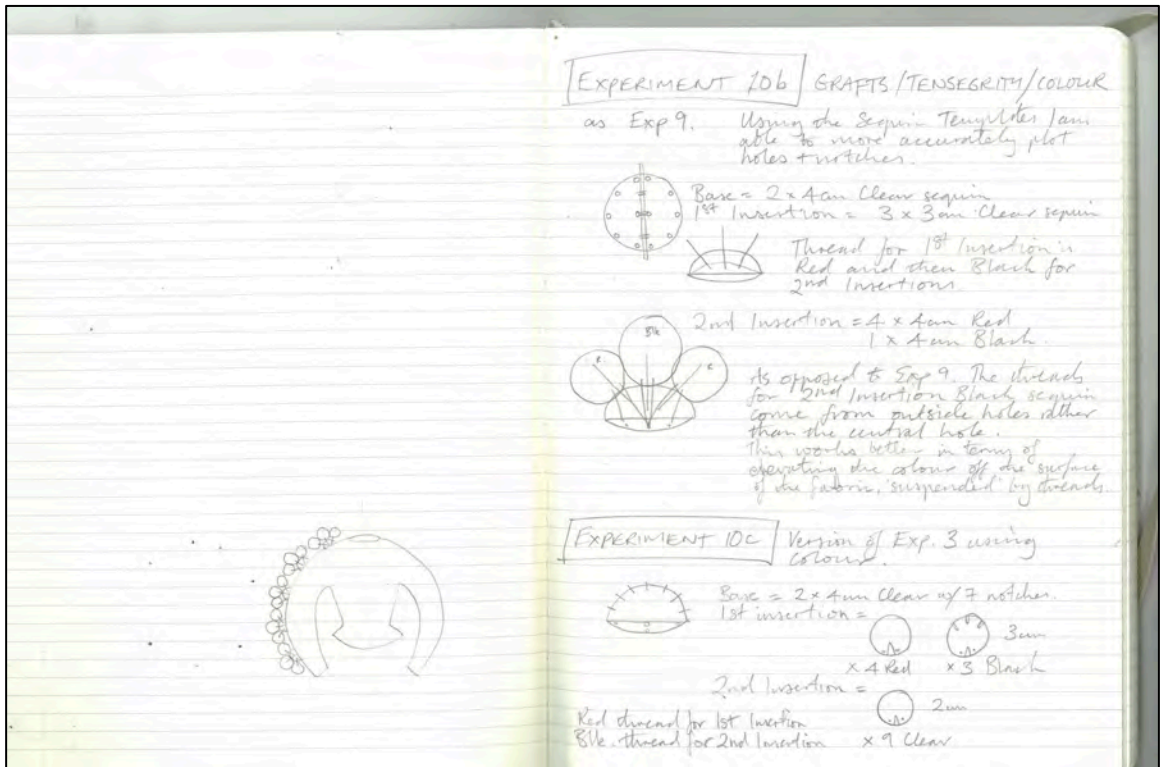 EXPERIMENT 10b GRAFTS/TENSEGRITY/COLOUR
as Exp 9. Using the Sequin Templates I am
able to more accurately plot
holes + notches.
Base = 2 x 4cm Clear sequin
1st Insertion = 3 x 3cm Clear sequin
Thread for 1st Insertion is
Red and then Black for
2nd Insertions
2nd Insertion = 4 x 4cm Red
1 x 4cm Black.
Blk
R
R
As opposed to Exp 9. The threads
for 2nd Insertion Black sequin
come from outside holes rather
than the central hole.
This works better in terms of
elevating the colour off the surface
of the fabric, 'suspended' by threads.
EXPERIMENT 10c Version of Exp. 3 using
colour.
Base = 2 x 4cm Clear w/ 7 notches.
1st insertion =
3cm
x 4 Red x 3 Black
2nd Insertion =
2cm
Red thread for 1st Insertion
Blk. thread for 2nd Insertion x 9 Clear